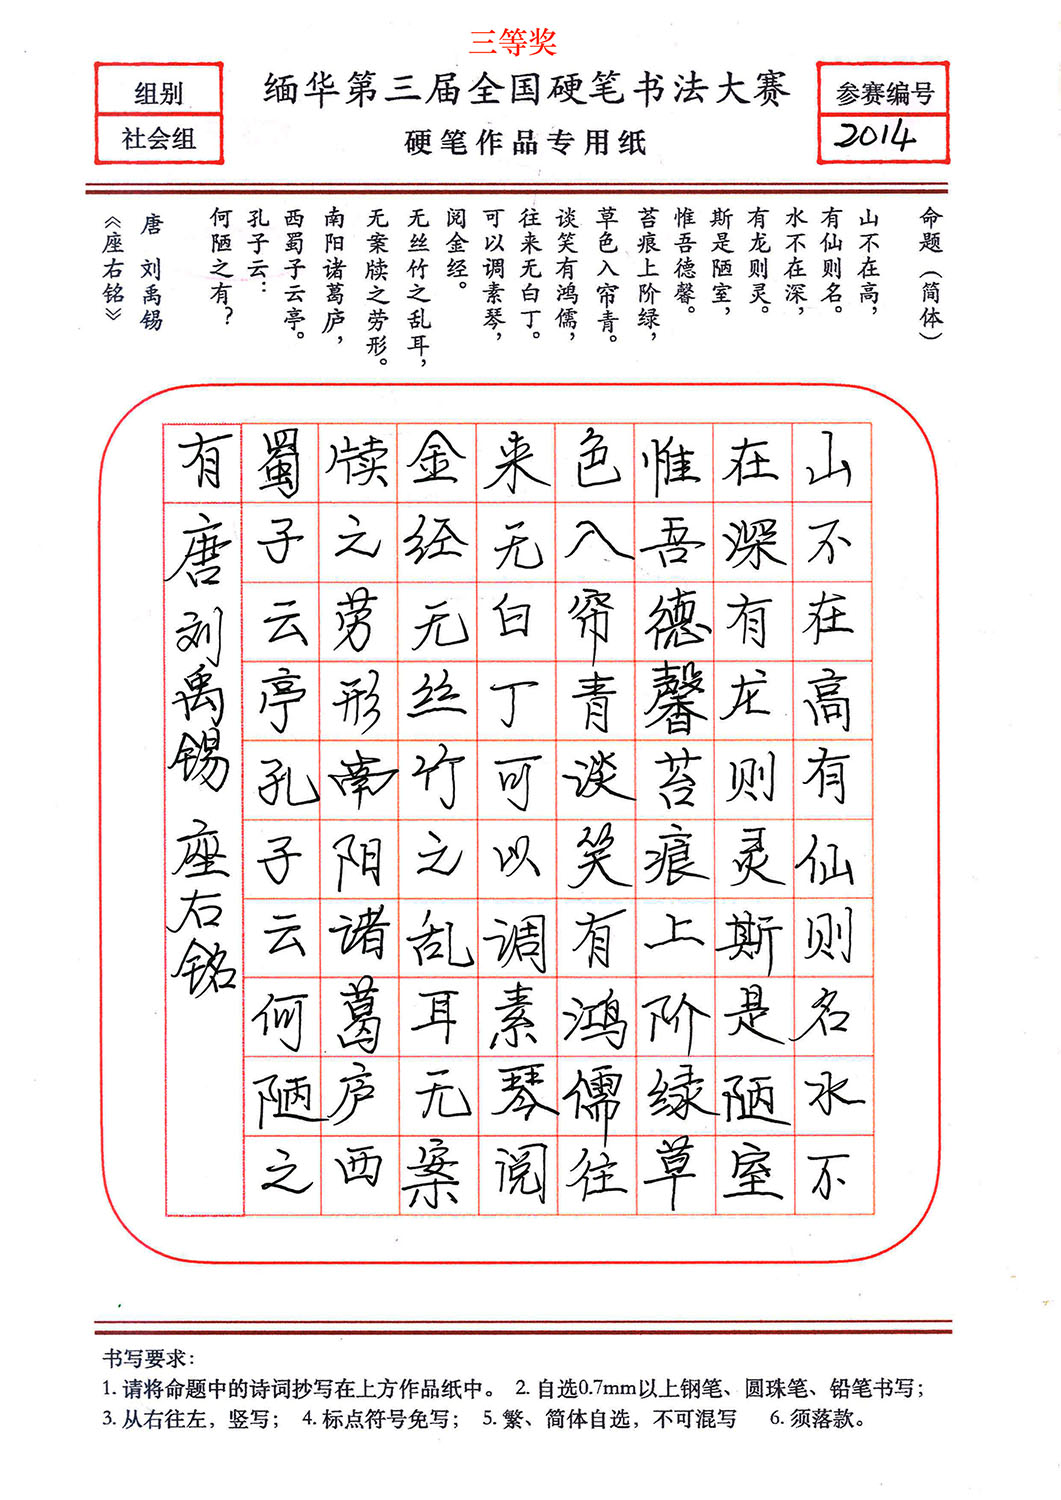 三等奖
组别
社会组
缅华第三届全国硬笔书法大赛
硬笔作品专用纸
参赛编号
2014
命题（简体）
山不在高，
有仙则名。
水不在深，
有龙则灵。
斯是陋室，
惟吾德馨。
苔痕上阶绿，
草色入帘青。
谈笑有鸿儒，
往来无白丁。
可以调素琴，
阅金经。
无丝竹之乱耳，
无案牍之劳形。
南阳诸葛庐，
西蜀子云亭。
孔子云：
何陋之有？
唐 刘禹锡
《座右铭》
山不在高有仙则名水不
在深有龙则灵斯是陋室
惟吾德馨苔痕上阶绿草
色入帘青谈笑有鸿儒往
来无白丁可以调素琴阅
金经无丝竹之乱耳无案
牍之劳形南阳诸葛庐西
蜀子云亭孔子云何陋之
有 唐刘禹锡 座右铭
书写要求：
1. 请将命题中的诗词抄写在上方作品纸中。 2. 自选0.7mm以上钢笔、圆珠笔、铅笔书写；
3. 从右往左，竖写； 4. 标点符号免写； 5. 繁、简体自选，不可混写 6. 须落款。